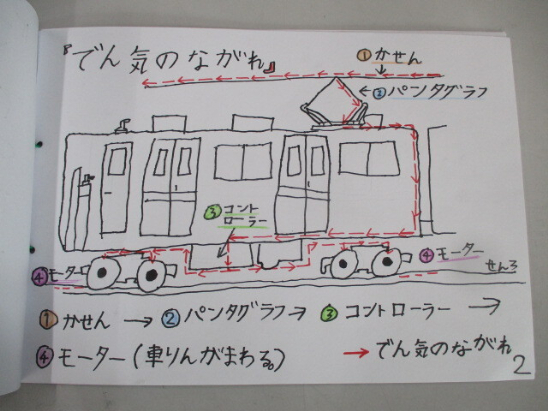 『でん気のながれ』
①かせん
←②パンタグラフ
③コントローラー
④モーター
④モーター
せんろ
①かせん→②パンタグラフ→③コントローラー→
④モーター(車りんがまわる。) →でん気のながれ
2